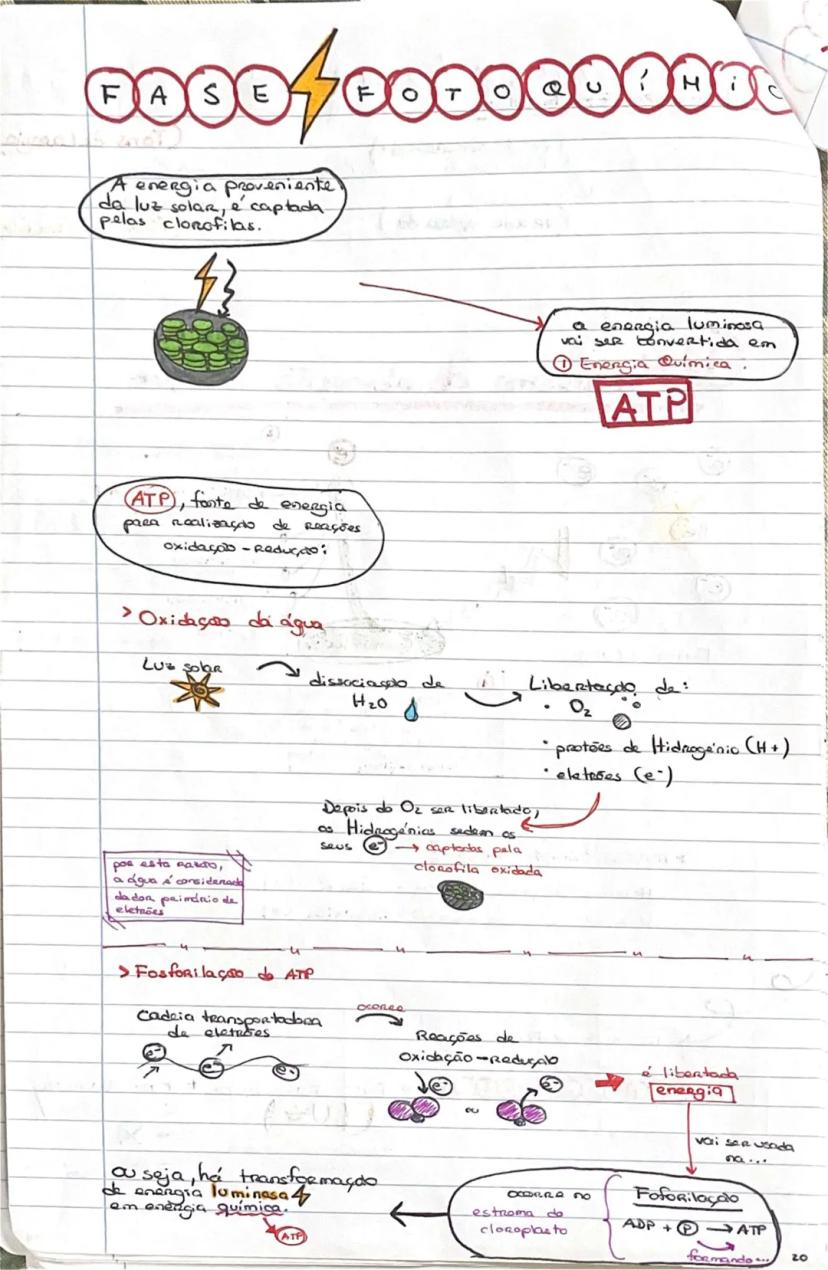 FASE FOTOQUÍMIC
A energia proveniente
da luz solar, é captada
pelas clorofilas.
a energia luminosa
vai ser convertida em
① Energia Química.
ATP
ATP, fonte de energia
para realização de reações
oxidação-redução:
> Oxidação da água
Luz solar
dissociação de
H₂O
Libertação de:
• O₂
• protões de Hidrogénio (H+)
• eletrões (e⁻)
Depois do O₂ ser libertado,
os Hidrogénios sedem os
seus e⁻ → captadas pela
clorofila oxidada
por esta razão,
a água é considerada
dador primário de
eletrões
> Fosforilação do ATP
Cadeia transportadora
de eletrões
e⁻ e⁻ e⁻
ocorre
Reações de
Oxidação-Redução
e⁻ ou e⁻
é libertada
energia
vai ser usada
na...
Foforilação
ADP + P → ATP
formando...
ocorre no
estroma do
cloroplasto
ou seja, há transformação
de energia luminosa
em energia química.
ATP
20